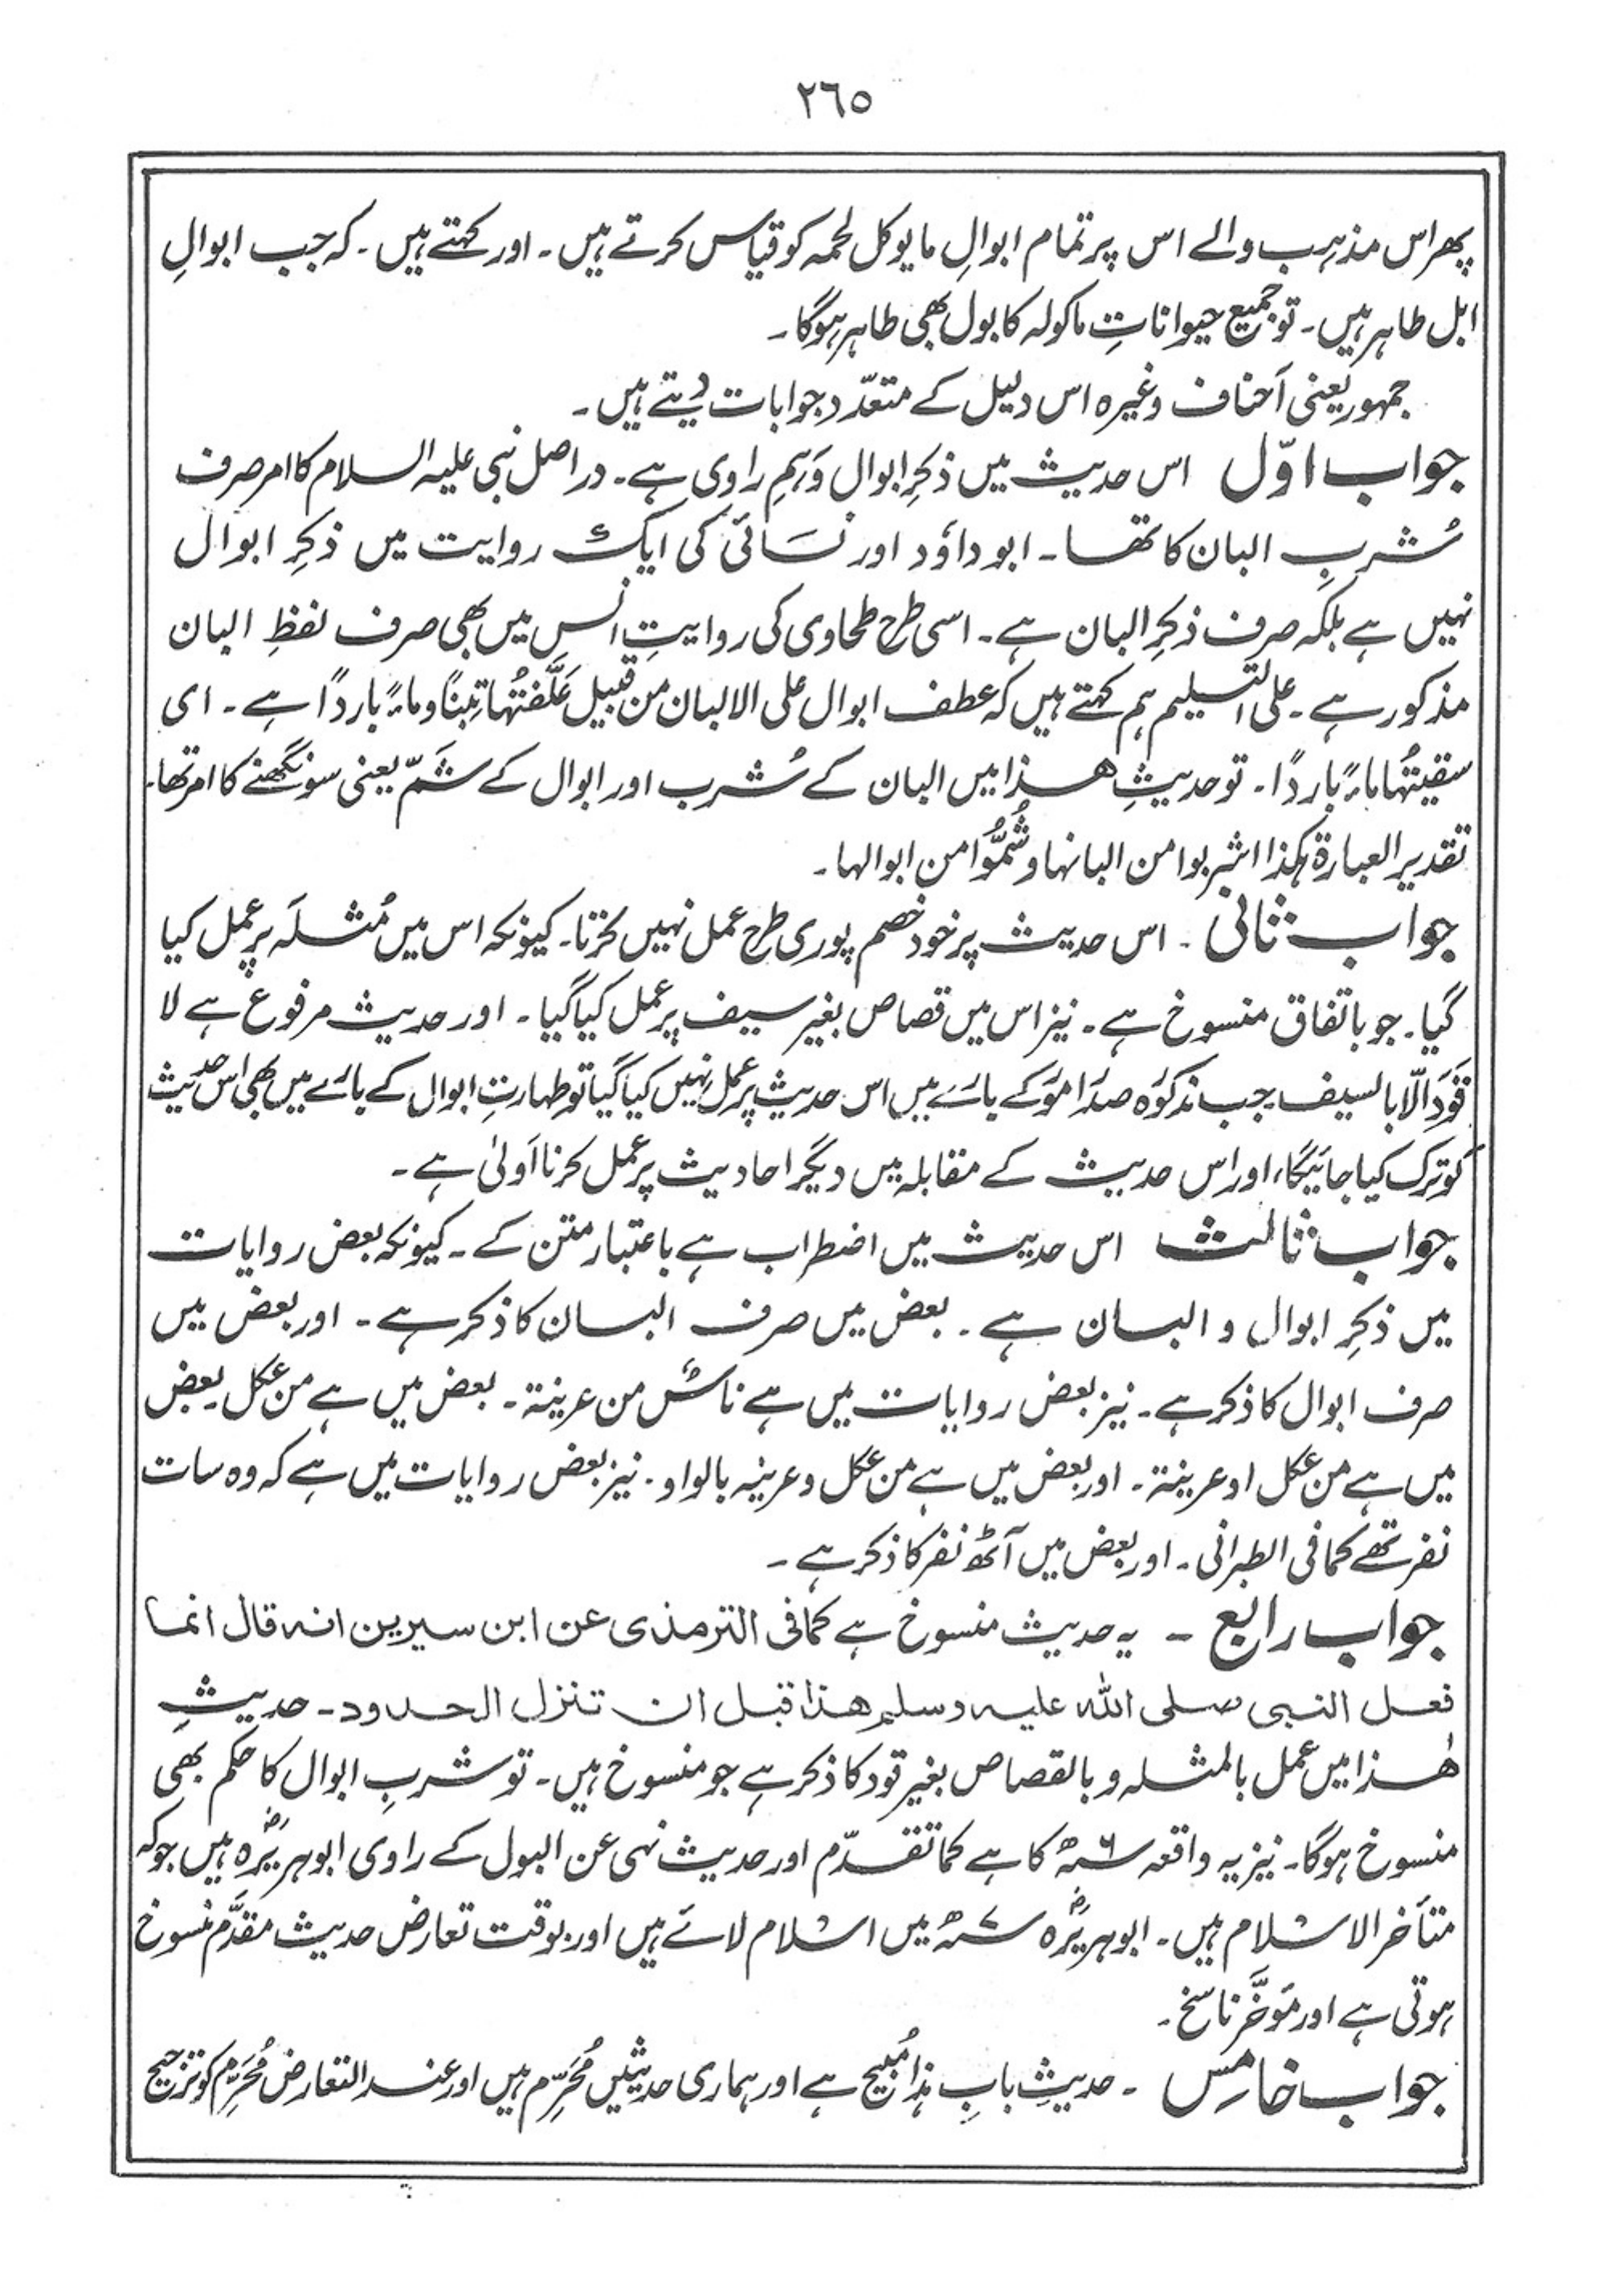 ٢٦٥
پھر اس مذہب والے اس پر تمام ابوالِ مایوکل لحمہ کو قیاس کرتے ہیں۔ اور کہتے ہیں۔ کہ جب ابوالِ
ابل طاہر ہیں۔ تو جمیع حیواناتِ ماکولہ کا بول بھی طاہر ہوگا۔
جمہور یعنی اَحناف وغیرہ اس دلیل کے متعدّد جوابات دیتے ہیں۔
جواب اوّل اس حدیث میں ذکرِ ابوال وَہمِ راوی ہے۔ در اصل نبی علیہ السلام کا امر صرف
شُربِ البان کا تھا۔ ابو داؤد اور نسَائی کی ایک روایت میں ذکرِ ابوال
نہیں ہے بلکہ صرف ذکرِ البان ہے۔ اسی طرح طحاوی کی روایتِ انس میں بھی صرف لفظِ البان
مذکور ہے۔ علی التسلیم ہم کہتے ہیں کہ عطف ابوال علی الالبان من قبیل عَلَّفتُہا تِبنًا و ماءً باردًا ہے۔ ای
سقیتُہا ماءً باردًا۔ تو حدیثِ ھذا میں البان کے شُرب اور ابوال کے شَمّ یعنی سونگھنے کا امر تھا۔
تقدیر العبارۃ ہکذا اشربوا من البانہا و شُمُّوا من ابوالہا۔
جواب ثانی ۔ اس حدیث پر خود خصم پوری طرح عمل نہیں کرتا۔ کیونکہ اس میں مُثلَہ پر عمل کیا
گیا۔ جو باتفاق منسوخ ہے۔ نیز اس میں قصاص بغیر سیف پر عمل کیا گیا۔ اور حدیث مرفوع ہے لا
قَوَدَ الّا بالسیف جب مذکورہ صدر امور کے بارے میں اس حدیث پر عمل نہیں کیا گیا تو طہارتِ ابوال کے بارے میں بھی اس حدیث
کو ترک کیا جائیگا، اور اس حدیث کے مقابلہ میں دیگر احادیث پر عمل کرنا اَولیٰ ہے۔
جواب ثالث اس حدیث میں اضطراب ہے باعتبار متن کے۔ کیونکہ بعض روایات
میں ذکرِ ابوال و البان ہے۔ بعض میں صرف البان کا ذکر ہے۔ اور بعض میں
صرف ابوال کا ذکر ہے۔ نیز بعض روایات میں ہے ناسٌ من عرینۃ۔ بعض میں ہے من عکل۔ بعض
میں ہے من عکل او عرینۃ۔ اور بعض میں ہے من عکل و عرینہ بالواو۔ نیز بعض روایات میں ہے کہ وہ سات
نفر تھے کما فی الطبرانی۔ اور بعض میں آٹھ نفر کا ذکر ہے۔
جواب رابع ۔ یہ حدیث منسوخ ہے کما فی الترمذی عن ابن سیرین انہ قال انما
فعل النبی صلی اللہ علیہ وسلم ھذا قبل ان تنزل الحدود۔ حدیثِ
ھٰذا میں عمل بالمثلہ و بالقصاص بغیر قود کا ذکر ہے جو منسوخ ہیں۔ تو شربِ ابوال کا حکم بھی
منسوخ ہوگا۔ نیز یہ واقعہ ۶ھ کا ہے کما تقدّم اور حدیث نہی عن البول کے راوی ابوہریرہؓ ہیں جو کہ
متأخر الاسلام ہیں۔ ابوہریرہؓ ۷ھ میں اسلام لائے ہیں اور بوقت تعارض حدیث مقدَّم منسوخ
ہوتی ہے اور مؤخَّر ناسخ۔
جواب خامس ۔ حدیثِ بابِ ہذا مُبیح ہے اور ہماری حدیثیں مُحَرِّم ہیں اور عند التعارض مُحَرِّم کو ترجیح